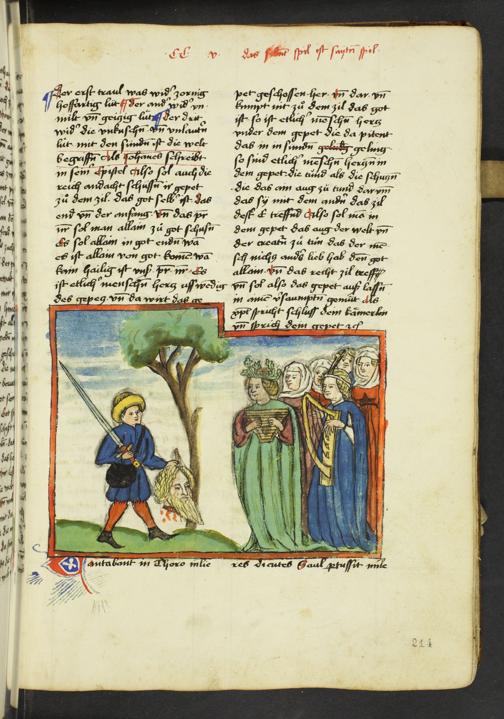 CC v. das sibent spil ist saytten spil
Der erst traul was wid' zornig
hoffertig lut der and' wid' yn
milt vn geizig lut der drit
wid' die vnkuschen vn vnlautn
lut mit den sunden ist die welt
begriffn Als Johanes schreibt
in sein Epistel Also sol auch die
reich andacht schussn ir gepet
zu dem zil. das got selb ist das
end vn der anfang vn das pet
ir sol man allain zu got schusn
Es sol allain in got enden wa
es ist allain von got komen wa
kain hailig ist vnß
ist etlich menschn hertz
des gepeg vn da wirt das ge
pet geschossen her vn dar vn
kumpt nit zu dem zil das got
ist so ist etlich menschn hertz
vnder dem gepet die da
das in in sundn geludig geling
so sind etlich menschn hertzn in
dem gepet die tund als die schutzn
die das ain aug zu tund darum
das sy mit dem andn das zil
dest e treffend Also sol ma in
dem gepet das aug der welt vn
der creatur zu tun das der me
sch nichtz andß lieb hab den got
allain vn das recht zil treff
vn sol also das gepet auß lassn
in aine gemut Als
xps spricht schluss dem kamerlin
vn sprich dem gepet
Cantabant in Choro mulie
res dicentes Saul percussit mille
214